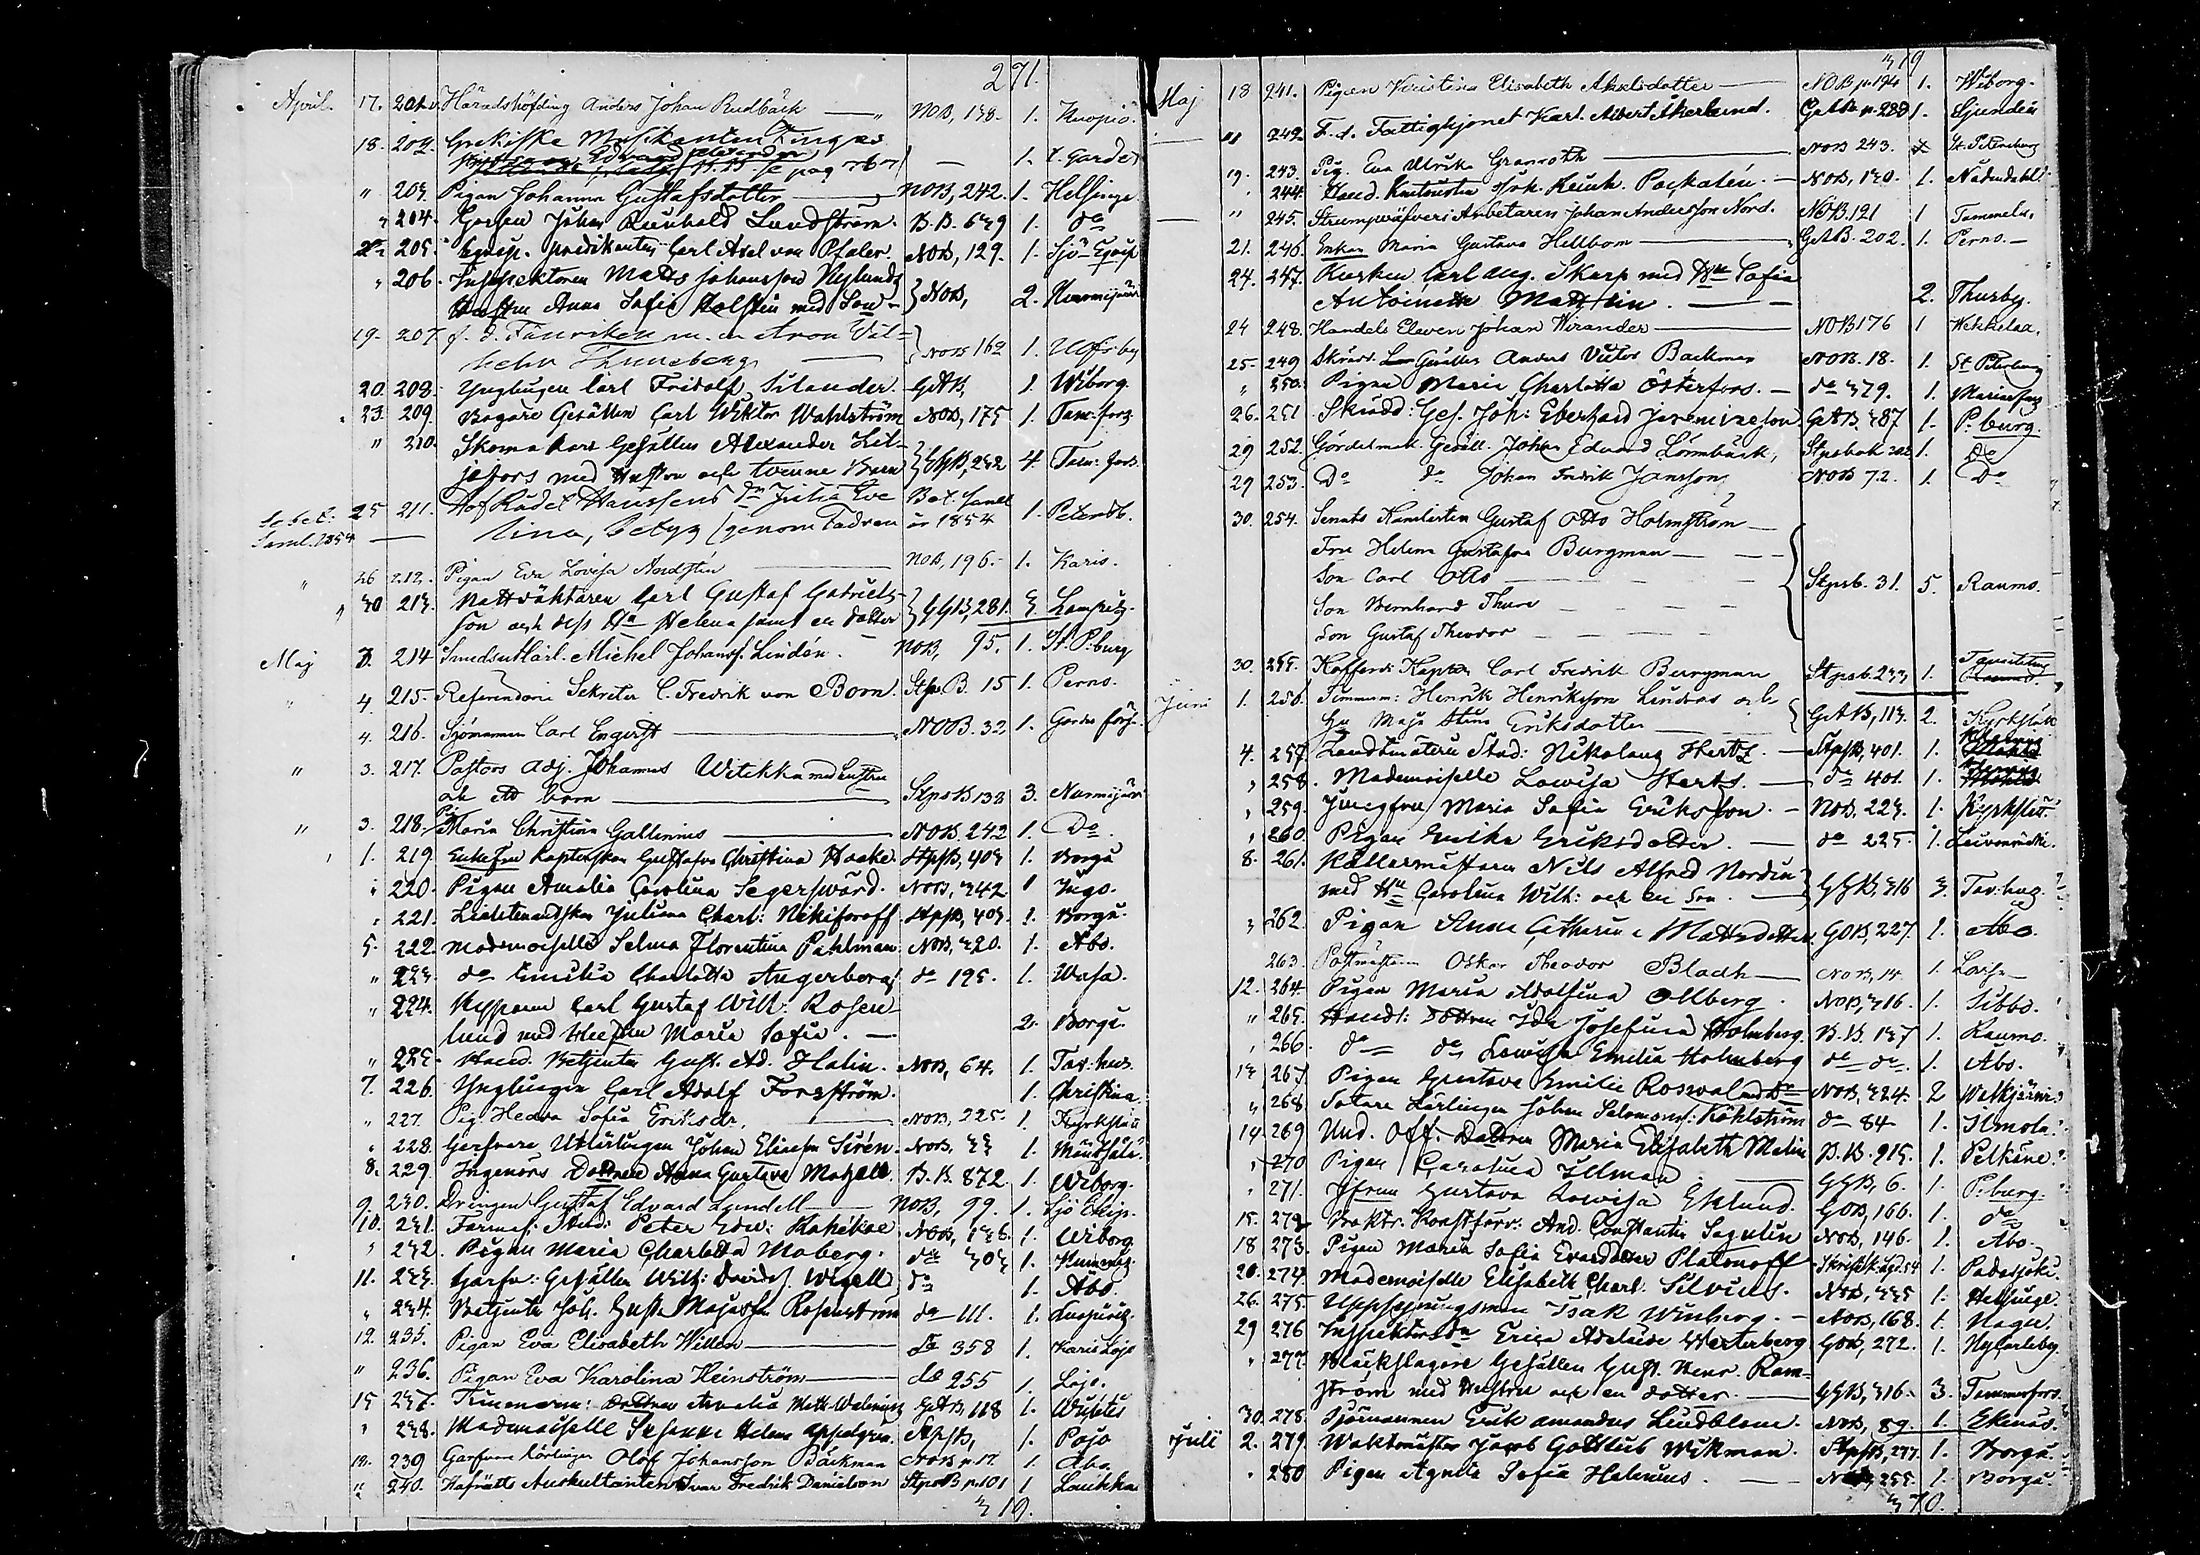 271.
April. 17. 201. Häradshöfding Anders Johan Rudbäck — NOB, 138. 1. Kuopio.
18. 202. Grekiske
Edvard se pag
" 203. Pigan Johanna Gustafsdotter NOB, 242. 1. Helsinge
" 204. Johan Reinhold Lundström. B.B. 639 1. do
205. predikanten Carl Axel von Pfaler. NOB, 129. 1. Sjö-Equip
" 206. Inspektoren Matts Johansson Nylund
Hustru Anna Sofia med Son NOB, 2. Nurmijärvi
19. 207. f. d. Fänriken m. m. Aron Wil-
helm Thuneberg NOB 162 1. Ulfsby
20. 208. Ynglingen Carl Fridolf Silander. GAB, 1. Wiborg.
23. 209. Bagare Gesällen Carl Wiktor Wahlström NOB, 175 1. Tam:fors
" 210. Skomakare Gesällen Alexander Lil-
jefors med Hustru och tvenne Barn GGB, 232 4. Tam: fors.
25 211. Hof Rådet Hanssens dr Julia Eve
lina, Betyg (genom Fadren år 1854 1. Petersb.
" 26 212. Pigan Eva Lovisa Nordsten NOB, 196. 1. Karis.
" 30 213. Nattväktaren Carl Gustaf Gabriels-
son och dess Hu Helena samt en dotter GGB, 281. 3
Maj 3. 214 Michel Johanss. Lindén. NOB, 95. 1. St. P:burg
" 4. 215. Referendarie Sekreter C. Fredrik von Born. Stps B. 15 1. Perno.
4. 216. Sjömannen Carl Engerst NOB. 32 1.
" 3. 217. Pastors Adj. Johannes Witikka med hustru
och ett barn Stps B 132 3. Nurmijärvi
" 3. 218. Pig Maria Christina Gallenius NOB. 242 1. Do.
1. 219. Enkefru Kaptenskan Gustafva Christina Haake. StpsB, 403 1. Borgå
" 220. Pigan Amalia Carolina Segersvärd. NOB, 342 1 Ingo.
" 221. Lieutenantskan Juliana Charl: Nikiforoff. StpsB, 403. 1. Borgå.
5. 222. Mademoiselle Selma Florentina Pahlman. NOB, 320. 1. Åbo.
" 223. do Emilia Charlotta Angerborg do 195. 1. Wasa.
" 224. Carl Gustaf Wilh: Rosen
lund med Hustru Maria Sofia. — 2. Borgå.
" 225. Hand. Betjenten Gust. Ad. Halin. NOB, 64. 1. Tav:hus.
7. 226. Ynglingen Carl Adolf Forsström. 1. Christina.
" 227. Pig. Hedva Sofia Eriksdr. NOB, 225. 1. Kyrkslätt
" 228. Garfvare Utlärlingen Johan Eliasson Sirén. NOB, 33 1. Mäntsälä.
8. 229. Ingeniörs Dottren Anna Gustava B.B. 872. 1. Wiborg.
9. 230. Drängen Gustaf Edvard Lyndell NOB, 99. 1. Sjö Ekip.
10. 231. Farmac: Stud: Peter Edw: NOB, 1. Wiborg
" 232. Pigan Maria Charlotta Moberg. do 303 1.
11. 233. Garfv: Gesällen Wilh: Davidss. Wigell do 1. Åbo.
" 234. Betjenten Joh. Gust. Rosenström do 111. 1.
12. 235. Pigan Eva Elisabeth Willen do 358 1. Karis Lojo
" 236. Pigan Eva Karolina Heinström do 255 1. Lojo.
15 237. Timmerm: Dottren Amalia Math. GAB, 118 1. Wichtis
" 238. Mademoiselle Susanna Helena Appelgren. StpsB, 1. Pojo
18. 239 Garfvare Lärlingen Olof Johansson Bäckman NOB p. 17. 1. Åbo.
" 240. Hofrätts Auskultanten Ivar Fredrik Danielson StpsB p. 101 1 Laukka
319.
319
Maj 18 241. Pigan Kristina Elisabeth Akselsdotter NOB p. 194 1. Wiborg.
" 242. F. d. Fattighjonet Karl Albert Åkerlund. GAB p. 280 1. Sjundeå
19. 243. Pig. Eva Ulrika Granroth NOB 243. St. Petersburg
" 244. NOB, 130. 1. Nådendahl.
" 245. Strumpväfveri Arbetaren Johan Andersson Nord. NOB. 121 1 Tammela.
21. 246. Enkan Maria Gustava Hellbom GAB. 202. 1. Perno.
24. 247. Kusken Carl Aug. Skarp med Hu Sofia
Antoinetta 2. Thusby.
24 248. Handels Eleven Johan Wirander NOB 176 1 Wehkelaa.
25. 249 Skrädd. Gesällen Anders Victor Backman NOB. 18. 1. St. Petersburg
" 250. Pigan Maria Charlotta Österfors. do 379. 1. Mariefors
26. 251. Skrädd: Ges. Joh: Eberhard Jeremiasson GAB. 387 1. P:burg.
29 252. Gördelmak. Gesäll. Johan Edvard Lönnbäck, Stpsbok 202 1. Do
29 253. Do do Johan Fredrik Jansson, NOB 72. 1. Do
30. 254. Senats Kanslisten Gustaf Otto Holmström
Fru Helena Gustafva Bergman
Son Carl Otto
Son Bernhard Thure
Son Gustaf Theodor Stpsb. 31. 5. Raumo.
30. 255. Kofferdi Kapten Carl Fredrik Bergman Stpsb. 233 1.
Juni 1. 256. Timmerm: Henrik Henriksson Lindroos och
Hu Maja Stina Eriksdotter GAB, 113. 2. Kyrkslätt
4. 257. Landtmäteri Stud: Nikolaus Hertz. StpsB, 401. 1.
" 258. Mademoiselle Lovisa Hertz. do 401. 1.
" 259. Jungfru Maria Sofia Eriksson. NOB, 223. 1. Kyrkslätt.
" 260. Pigan Ulrika Eriksdotter. do 225. 1.
8. 261. Källarmästaren Nils Alfred Nordin
med Hu Carolina Wilh: och en Son. GGB, 316 3. Tav:hus.
" 262. Pigan Anna Catharina Mattsdotter GOB, 227. 1. Åbo.
263. Postmästaren Oskar Theodor Bladh NOB, 14. 1. Lovisa
12. 264. Pigan Maria Adolfina Ollberg. NOB, 316. 1. Sibbo.
" 265. Handl: Dottren Ida Josefina Holmberg. B.B. 137 1. Raumo.
" 266. do do Lovisa Emilia Holmberg do do. 1. Åbo.
13 267. Pigan Gustava Emilia Roswal med Dr NOB, 324. 2 Walkjärvi.
" 268 Sotare Lärlingen Johan Salomonss: Kåhlström do 84 1. Ilmola.
14. 269 Und. Off. Dottren Maria Elisabeth Malin B.B. 915. 1. Pelkäne.
" 270 Pigan Carolina Illman GGB, 6. 1. P:burg.
" 271. Jfrun Gustava Lovisa Eklund. GOB, 166. 1. do
15. 272. And. Constantin Segulin NOB, 146. 1. Åbo.
18 273. Pigan Maria Sofia Evasdotter Platonoff 1. Padasjoki.
20. 274. Mademoiselle Elisabeth Charl: Silvius. NOB, 335 1. Helsinge.
26. 275. Uppsyningsman Isak Winberg. NOB, 168. 1. Nagu.
29 276 Inspektors dr Erica Adelaide Westerberg GOB, 272. 1. Nykarleby
" 277. Bleckslagare Gesällen Gust. Henr. Ram-
ström med Hustru och en dotter. GGB, 316. 3. Tammerfors.
30. 278. Sjömannen Erik Amandus Lindblom. NOB, 89. 1. Ekenäs.
Juli 2. 279. Waktmästar Jacob Gottlieb Wikman. StpsB, 277. 1. Borgå.
" 280 Pigan Agneta Sofia Helenius. NOB, 255. 1. Borgå.
370.